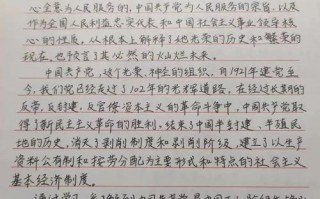 心全意为人民服务的中国共产党为人民服务的荣誉、以及
作为全国人民利益忠实代表和中国社会主义事业领导核
心的性质，从根本上解释了她光荣的历史和繁荣的现
在，也预言了其必然的火灿烂未来。
中国共产党，这个光荣、神圣的组织，自1921年建党至
今，我们党已经走过了102年的光辉道路，在经过长期的
反帝、反封建、反官僚资本主义的革命斗争中，中国共产党取
得了新民主主义革命的胜利，结束了中国半封建、半殖民
地的历史，消灭了剥削制度和剥削阶级，建立了以生产
资料公有制和按劳分配为主要形式和特点的社会主义
基本经济制度。
通过学习